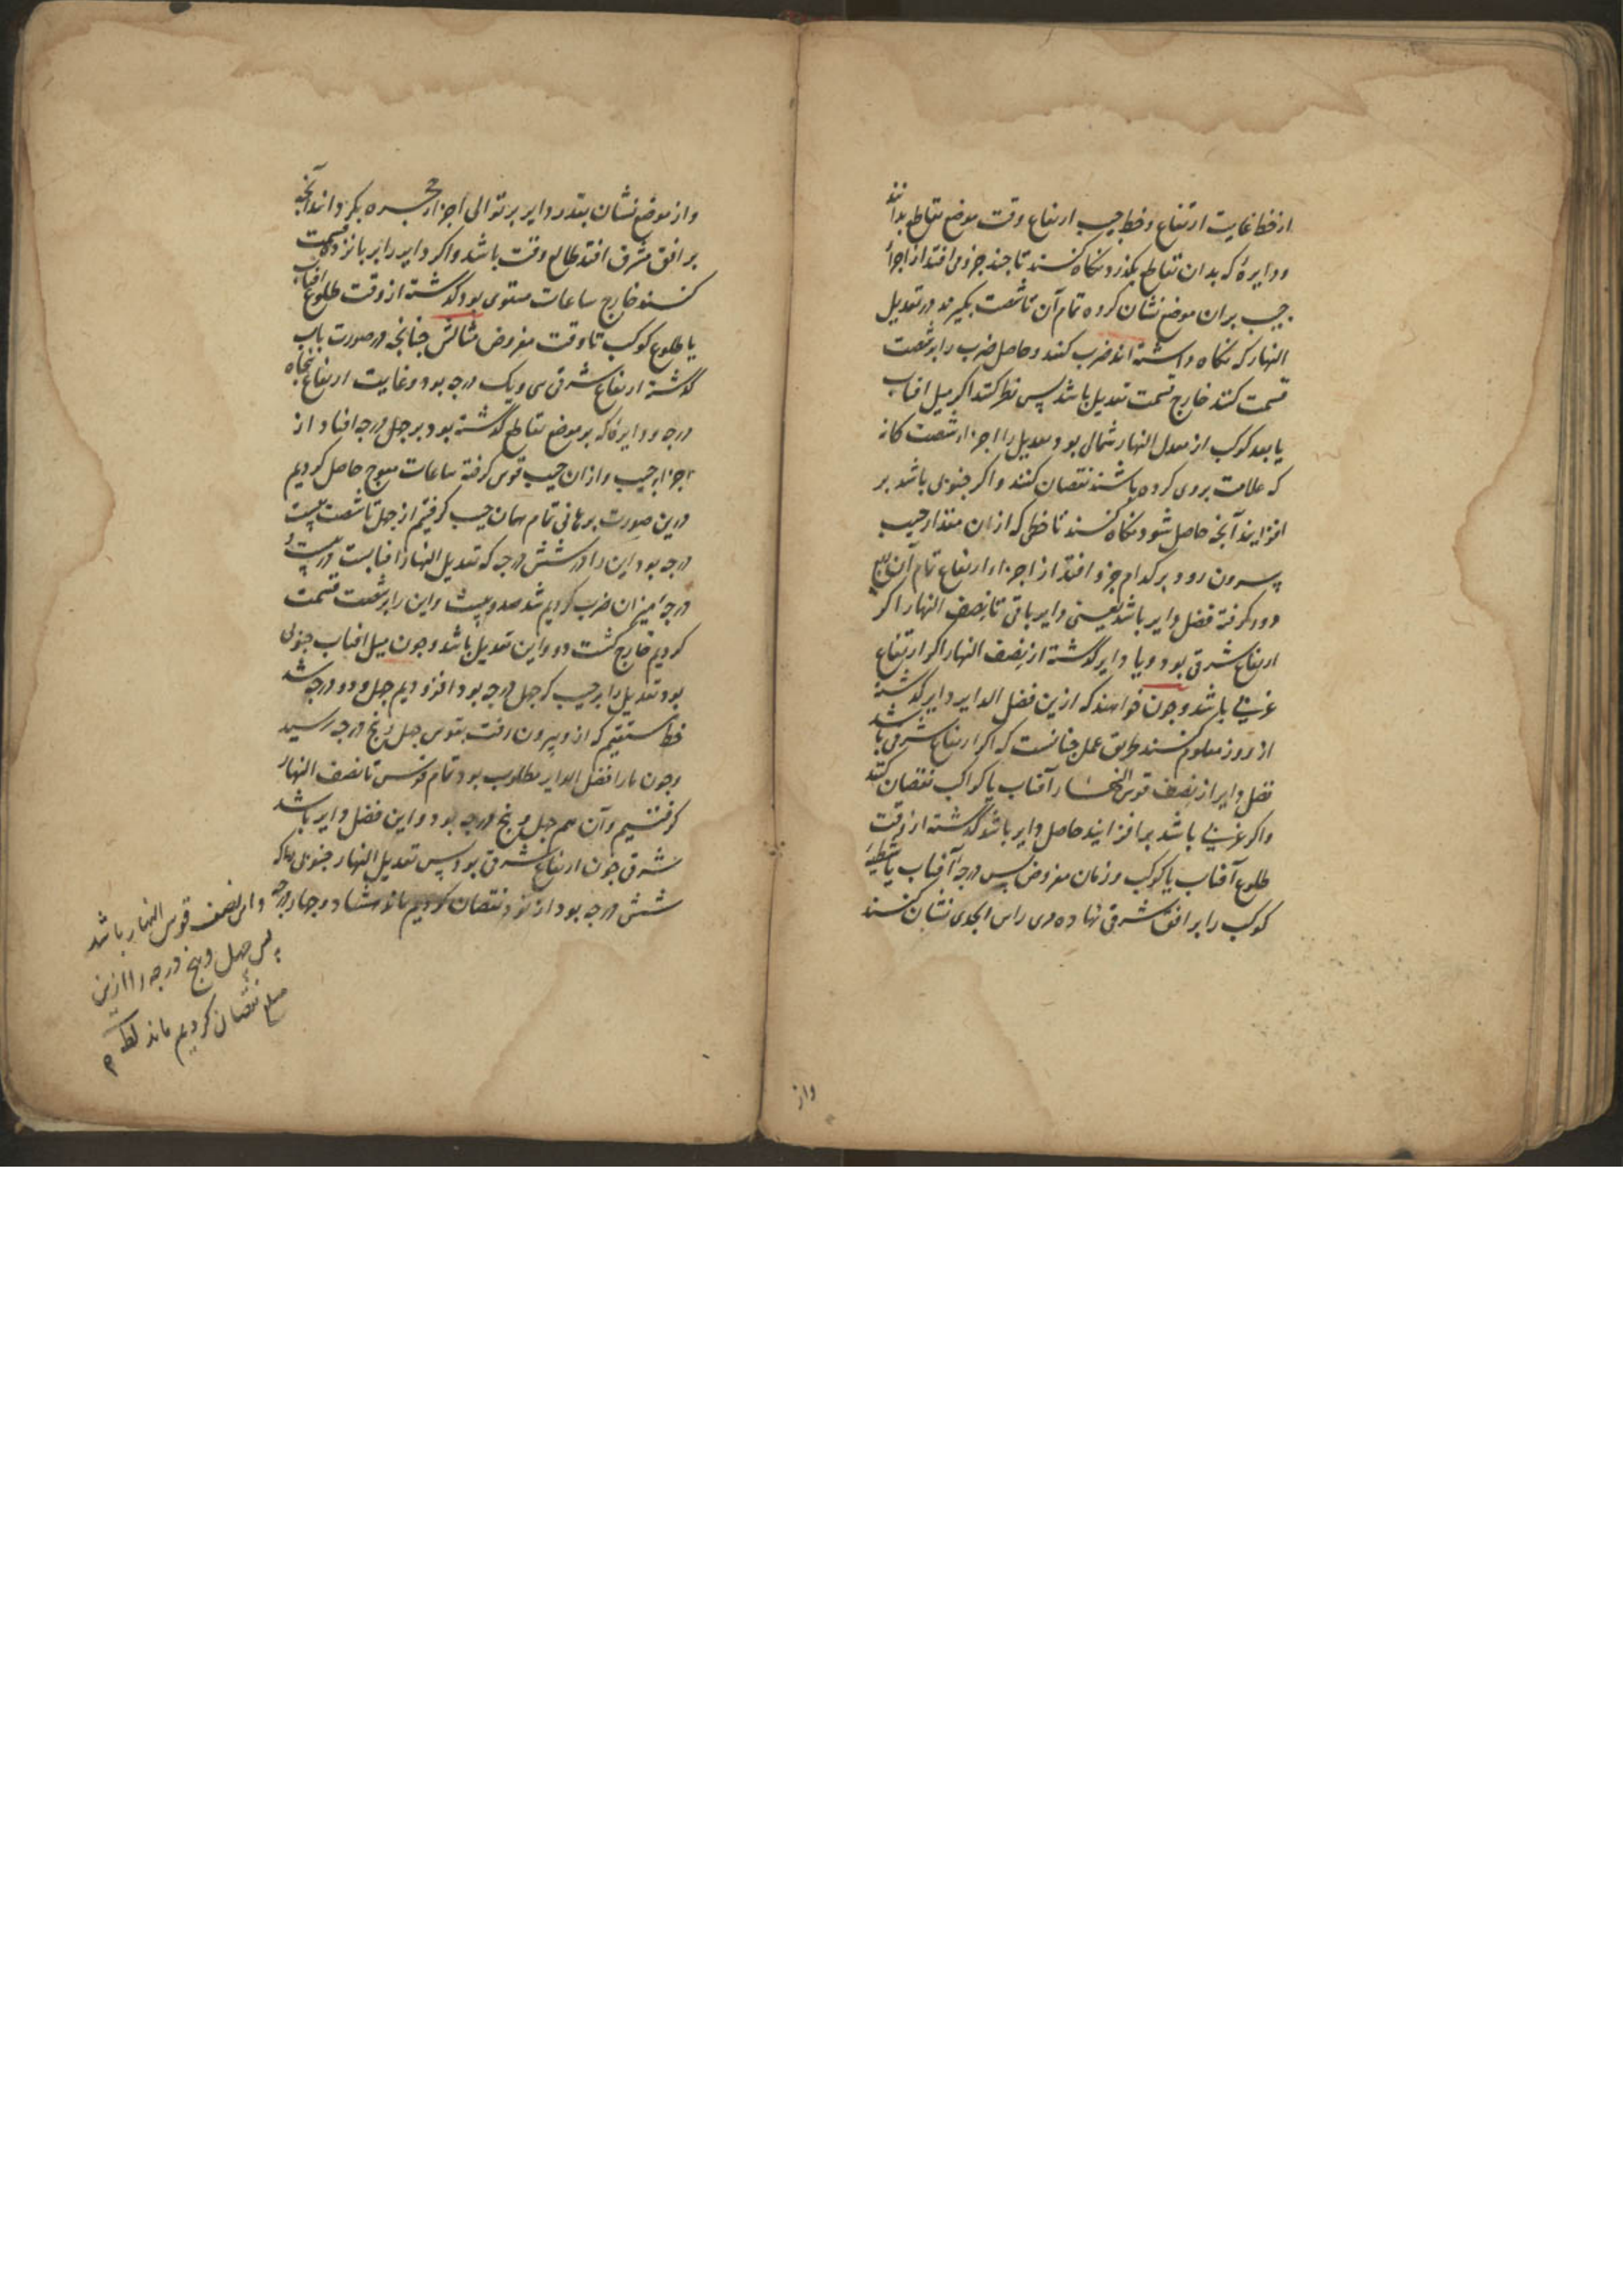 از خط غایت ارتفاع و خط جیب ارتفاع وقت موضع تقاطع بدانند
و دایرهٔ که بدان تقاطع بگذرد نگاه کنند تا چند جزو می افتد از اجزأ
جیب بران موضع نشان کرده تمام آن تا شصت بگیرند در تعدیل
النهار که نگاه داشته اند ضرب کنند و حاصل ضرب را بر شصت
قسمت کنند خارج قسمت تعدیل باشد پس نظر کنند اکر میل افتاب
یا بعد کوکب از معدل النهار شمالی بود تعدیل را از اجزاء شصت کانه
که علامت بروی کرده باشند نقصان کنند و اکر جنوبی باشد بر
افزایند آنچه حاصل شود نگاه کنند تا خطی که ازان مقدار جیب
بیرون رود بر کدام جزو افتد از اجزاء ارتفاع تمام آن
دور کرفته فضل دایر باشد یعنی دایر باقی تا نصف النهار اکر
ارتفاع شرقی بود و یا دایر گذشته از نصف النهار اکر ارتفاع
غربی باشد و چون خواهند که ازین فضل الدایر دایر گذشته
از روز معلوم کنند طریق عمل چنانست که اکر ارتفاع شرقی باشد
فضل دایر از نصف قوس النهار آفتاب یا کواکب نقصان کنند
و اکر غربی باشد برافزایند حاصل دایر باشد گذشته از وقت
طلوع آفتاب یا کوکب و زمان مفروض پس درجهٔ آفتاب یا شظیهٔ
کوکب را بر افق شرقی نهاده مری راس الجدی نشان کنند
واز
و از موضع نشان بقدر دایر بر توالی اجزاء حجره بگردانند آنچه
بر افق مشرق افتد طالع وقت باشد و اکر دایر را بر پانزده قسمت
کنند خارج ساعات مستوی بود گذشته از وقت طلوع افتاب
یا طلوع کوکب تا وقت مفروض مثالش چنانچه در صورت باب
گذشته ارتفاع شرقی سی و یک درجه بود و غایت ارتفاع پنجاه
درجه و دایرهٔ که بر موضع تقاطع گذشته بود بر چهل درجه افتاد از
اجزاء جیب و ازان جیب قوس کرفته ساعات معوج حاصل کردیم
درین صورت برهانی تمام همان جیب کرفتیم از چهل تا شصت بیست
درجه بود این را در شش درجه که تعدیل النهار افتابست در بیست و
درجه میزان ضرب کردیم شد صد و بیست و این را بر شصت قسمت
کردیم خارج گشت دو و این تعدیل باشد و چون میل افتاب جنوبی
بود تعدیل را بر جیب که چهل درجه بود افزودیم چهل و دو درجه شد
خط مستقیم که از و بیرون رفت بقوس چهل و پنج درجه رسید
و چون ما را فضل الدایر مطلوب بود تمام قوس تا نصف النهار
کرفتیم و آن هم چهل و پنج درجه بود و این فضل دایر باشد
شرقی چون ارتفاع شرقی بود پس تعدیل النهار جنوبی را که
شش درجه بود از نود نقصان کردیم ماند هشتاد و چهار درجه
و این نصف قوس النهار باشد
پس چهل و پنج درجه را ازین
مبلغ نقصان کردیم ماند لط